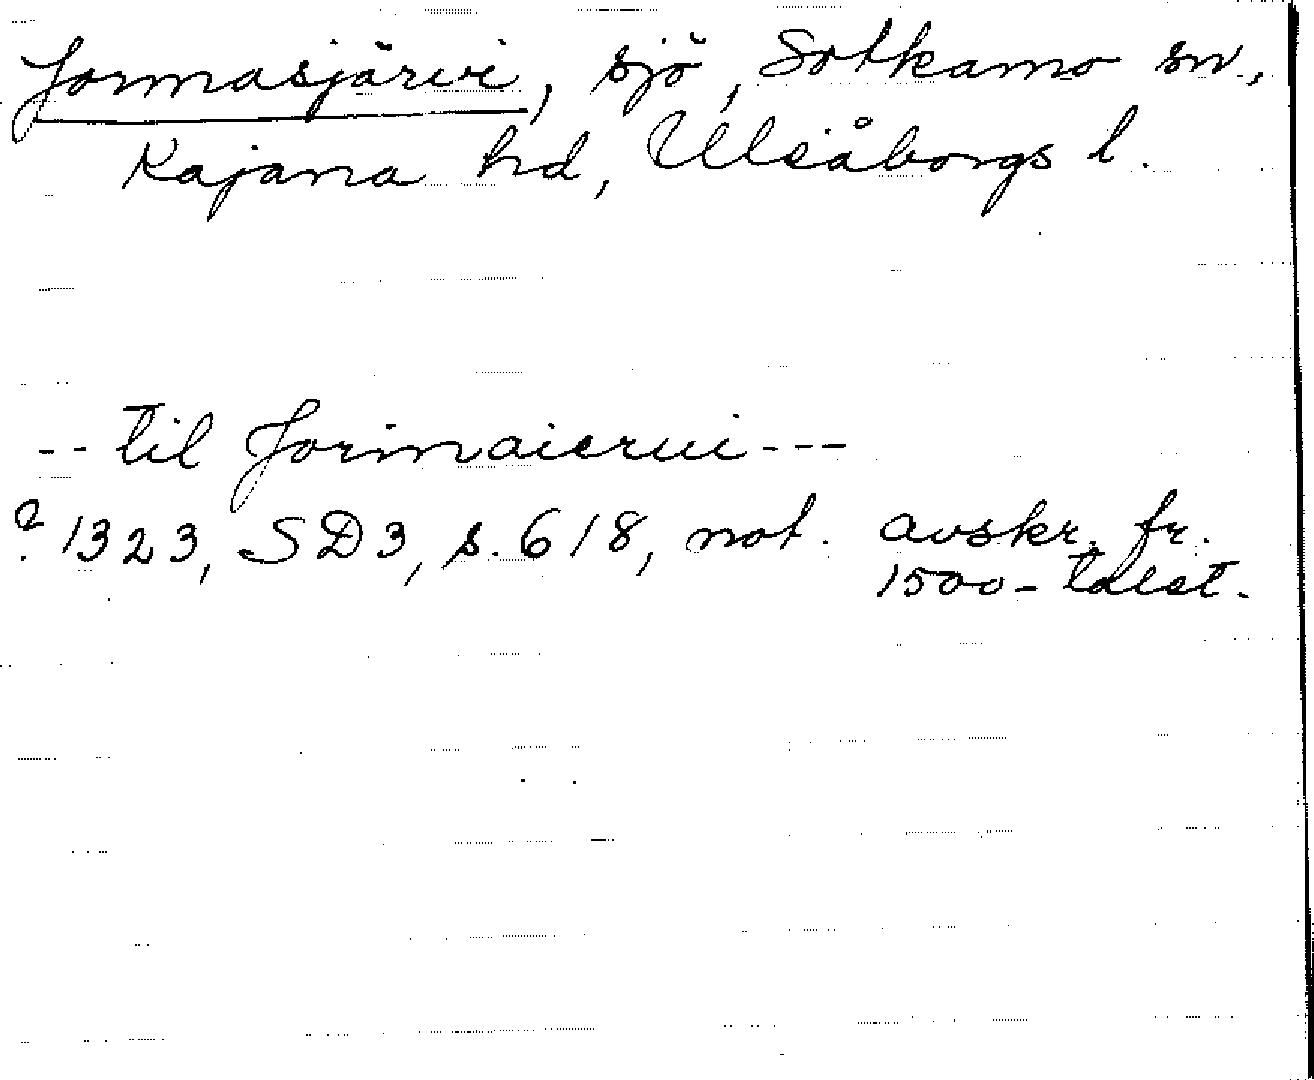 Jormasjärvi, sjö, Sotkamo sn,
Kajana hd, Uleåborgs l.
-- til Jorimaierui ---
? 1323, SD3, s. 618, not. avskr. fr.
1500-talet.